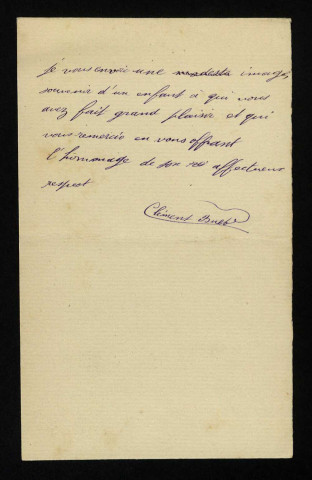 je vous envoie une modeste image,
souvenir d'un enfant à qui vous
avez fait grand plaisir et qui
vous remercie en vous offrant
l'hommage de son affectueux
respect
Clément